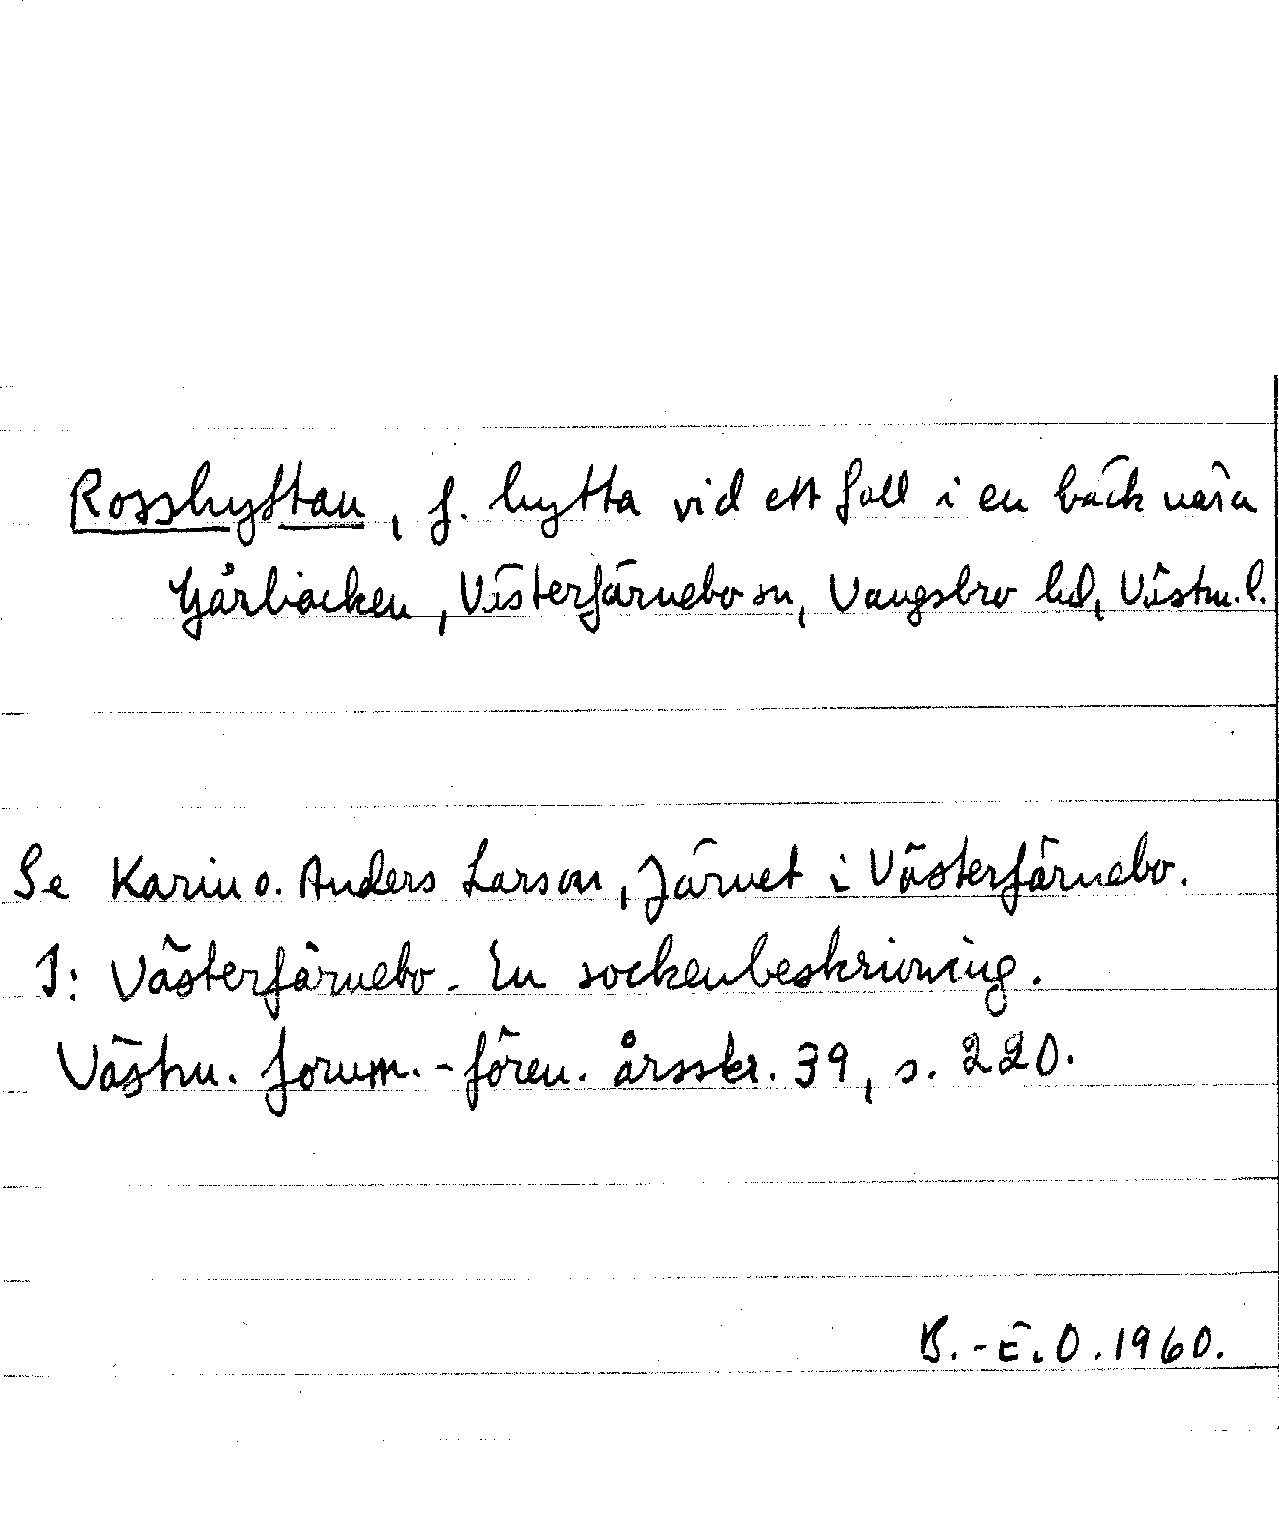 Rosshyttan, f. hytta vid ett fall i en bäck nära
Gårbäcken, Västerfärnebo sn, Vangsbro hd, Västm. l.
Se Karin o. Anders Larson, Järnet i Västerfärnebo.
I: Västerfärnebo. En sockenbeskrivning.
Västm. fornm.-fören. årsskr. 39, s. 220.
B.-E. O. 1960.